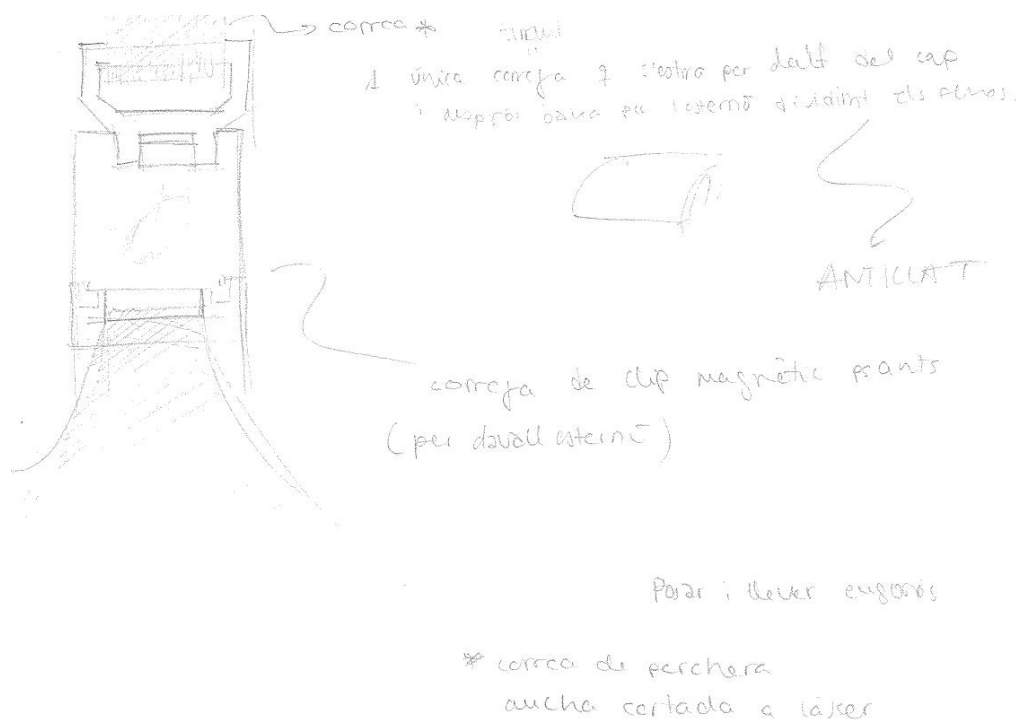 correa *
1 única correja q s'estira per dalt del cap
i després baixa per l'esternó dividint els
ANTILLAT
correja de clip magnètic
(per davall esternó)
Posar i llevar engorrós
* correa de perchera
ancha cortada a láser